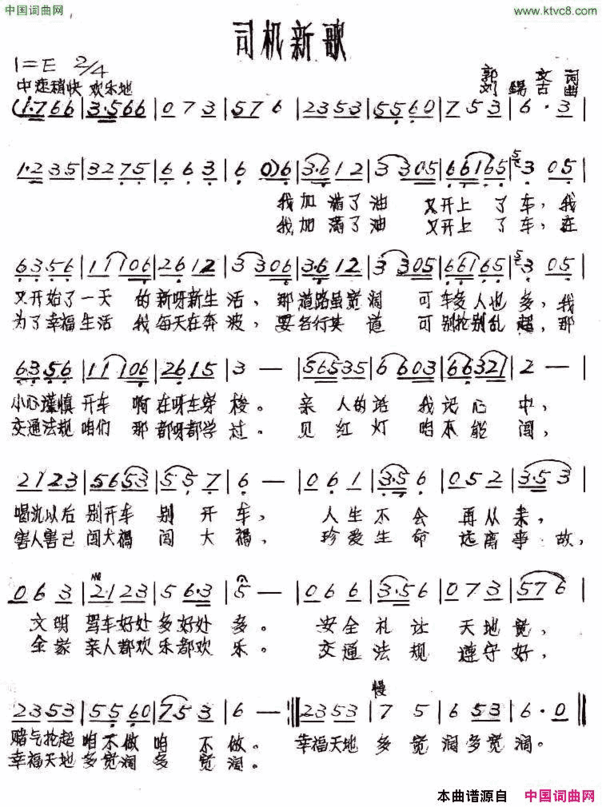 中国词曲网
www.ktvc8.com
司机新歌
1=E 2/4
郭 文 词
中速稍快 欢乐地
刘 锡 古 曲
(1·766 | 3·566 | 0 7 3 | 5 7 6 | 2353 | 5560 | 7 5 3 | 6 · 3 |
1·235 | 3275 | 6 6 3 | 6 0) 6 | 3·6 1 2 | 3 3 05 | 66165 | 3 05 |
我加 满了油 又开上 了 车, 我
我加 满了油 又开上 了 车, 在
63·56 | 1 1106 | 26 12 | 3 306 | 3·6 12 | 3 305 | 66165 | 3 05 |
又开始了一天 的新呀新生活, 那道路虽宽阔 可车多人也多, 我
为了幸福生活 我每天在奔波, 要各行其 道 可别抢别乱超, 那
63·56 | 1 1106 | 2615 | 3 — | 56535 | 6 603 | 66321 | 2 — |
小心谨慎开车 啊在呀在穿梭。 亲 人的话 我记心 中,
交通法规咱们 那都呀都学 过。 见 红灯 咱不能 闯,
2123 | 5653 | 5 5 7 | 6 — | 0 6 1 | 3·5 6 | 0 5 2 | 3·5 3 |
喝酒以后 别开车 别 开 车, 人生 不 会 再从 来,
害人害己 闯大祸 闯 大 祸, 珍爱 生 命 远离 事 故,
0 6 3 | 2·123 | 5 6·3 | 5 — | 0 6 6 | 3·5 6 | 0 7 3 | 5 7 6 |
文明 驾车好处多好处 多。 安全 礼 让 天地 宽,
全家 亲人都欢乐都欢 乐。 交通 法 规 遵守 好,
慢
2353 | 5560 | 7 5 3 | 6 — :|| 2353 | 7 5 | 6 53 | 6 · 0 ||
赌气抢超 咱不做 咱 不 做。 幸福天地 多 宽阔多宽 阔。
幸福天地 多宽阔 多 宽 阔。
本曲谱源自 中国词曲网